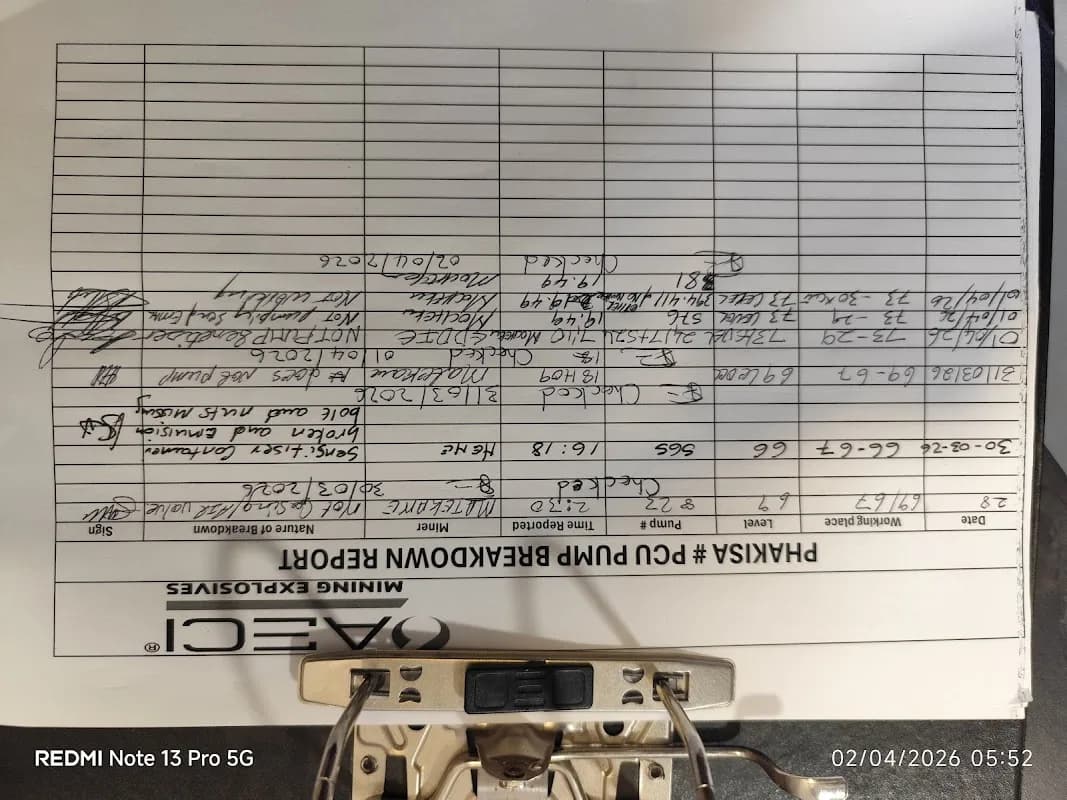 AECI®
MINING EXPLOSIVES
PHAKISA # PCU PUMP BREAKDOWN REPORT
Date Working place Level Pump # Time Reported Miner Nature of Breakdown Sign
28 69/67 69 827 2:30 MATEKANE Not Gasing/
Checked 30/03/2026
30-03-26 66-67 66 565 16:18 NENE Sensitiser Container
broken and Emulsion
bolt and nuts missing
Checked 31/03/2026
31/03/26 69-67 69 Level 18H09 Matekane does not pump
Checked 01/04/2026
01/04/26 73-29 73 LEVEL 241 + 524 7:40 EDDIE NOT PUMP
01/04/26 73-29 73 Level 576 19:49 Not pumping
01/04/26 73 73 Level 394-411 19:49 Not working
381 19:49
Checked 02/04/2026
REDMI Note 13 Pro 5G
02/04/2026 05:52